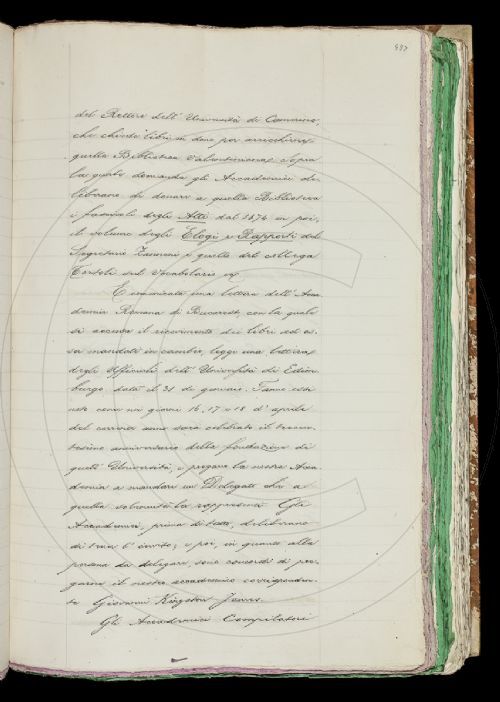 del Rettore dell'Università di Camerino,
che chiede libri in dono per arricchirne
quella Biblioteca Valentiniana. Sopra
la quale domanda gli Accademici de-
liberano di donare a quella Biblioteca
i fascicoli degli Atti dal 1874 in poi,
il volume degli Elogi e Rapporti del
Segretario Tauroni e quello del collega
Tortoli sul Vocabolario
È comunicata una lettera dell'Acca-
demia Romana di Bucarest, con la quale
si accusa il ricevimento dei libri ad es-
sa mandati in cambio; leggi una lettera
degli Officiali dell'Università di Edim-
burgo data il 31 di gennaio. Fanno essi
noto come nei giorni 16, 17 e 18 d'aprile
del corrente anno sarà celebrato il trecen-
tesimo anniversario della fondazione di
quell'Università, e pregano la nostra Acca-
demia a mandare un Delegato che a
quella solennità la rappresenti. Gli
Accademici, prima di tutto, deliberano
di tener l'invito; e poi, in quanto alla
persona da delegare, sono concordi di pre-
garne il nostro accademico corrisponden-
te Giovanni Kingston James.
Gli Accademici Compilatori